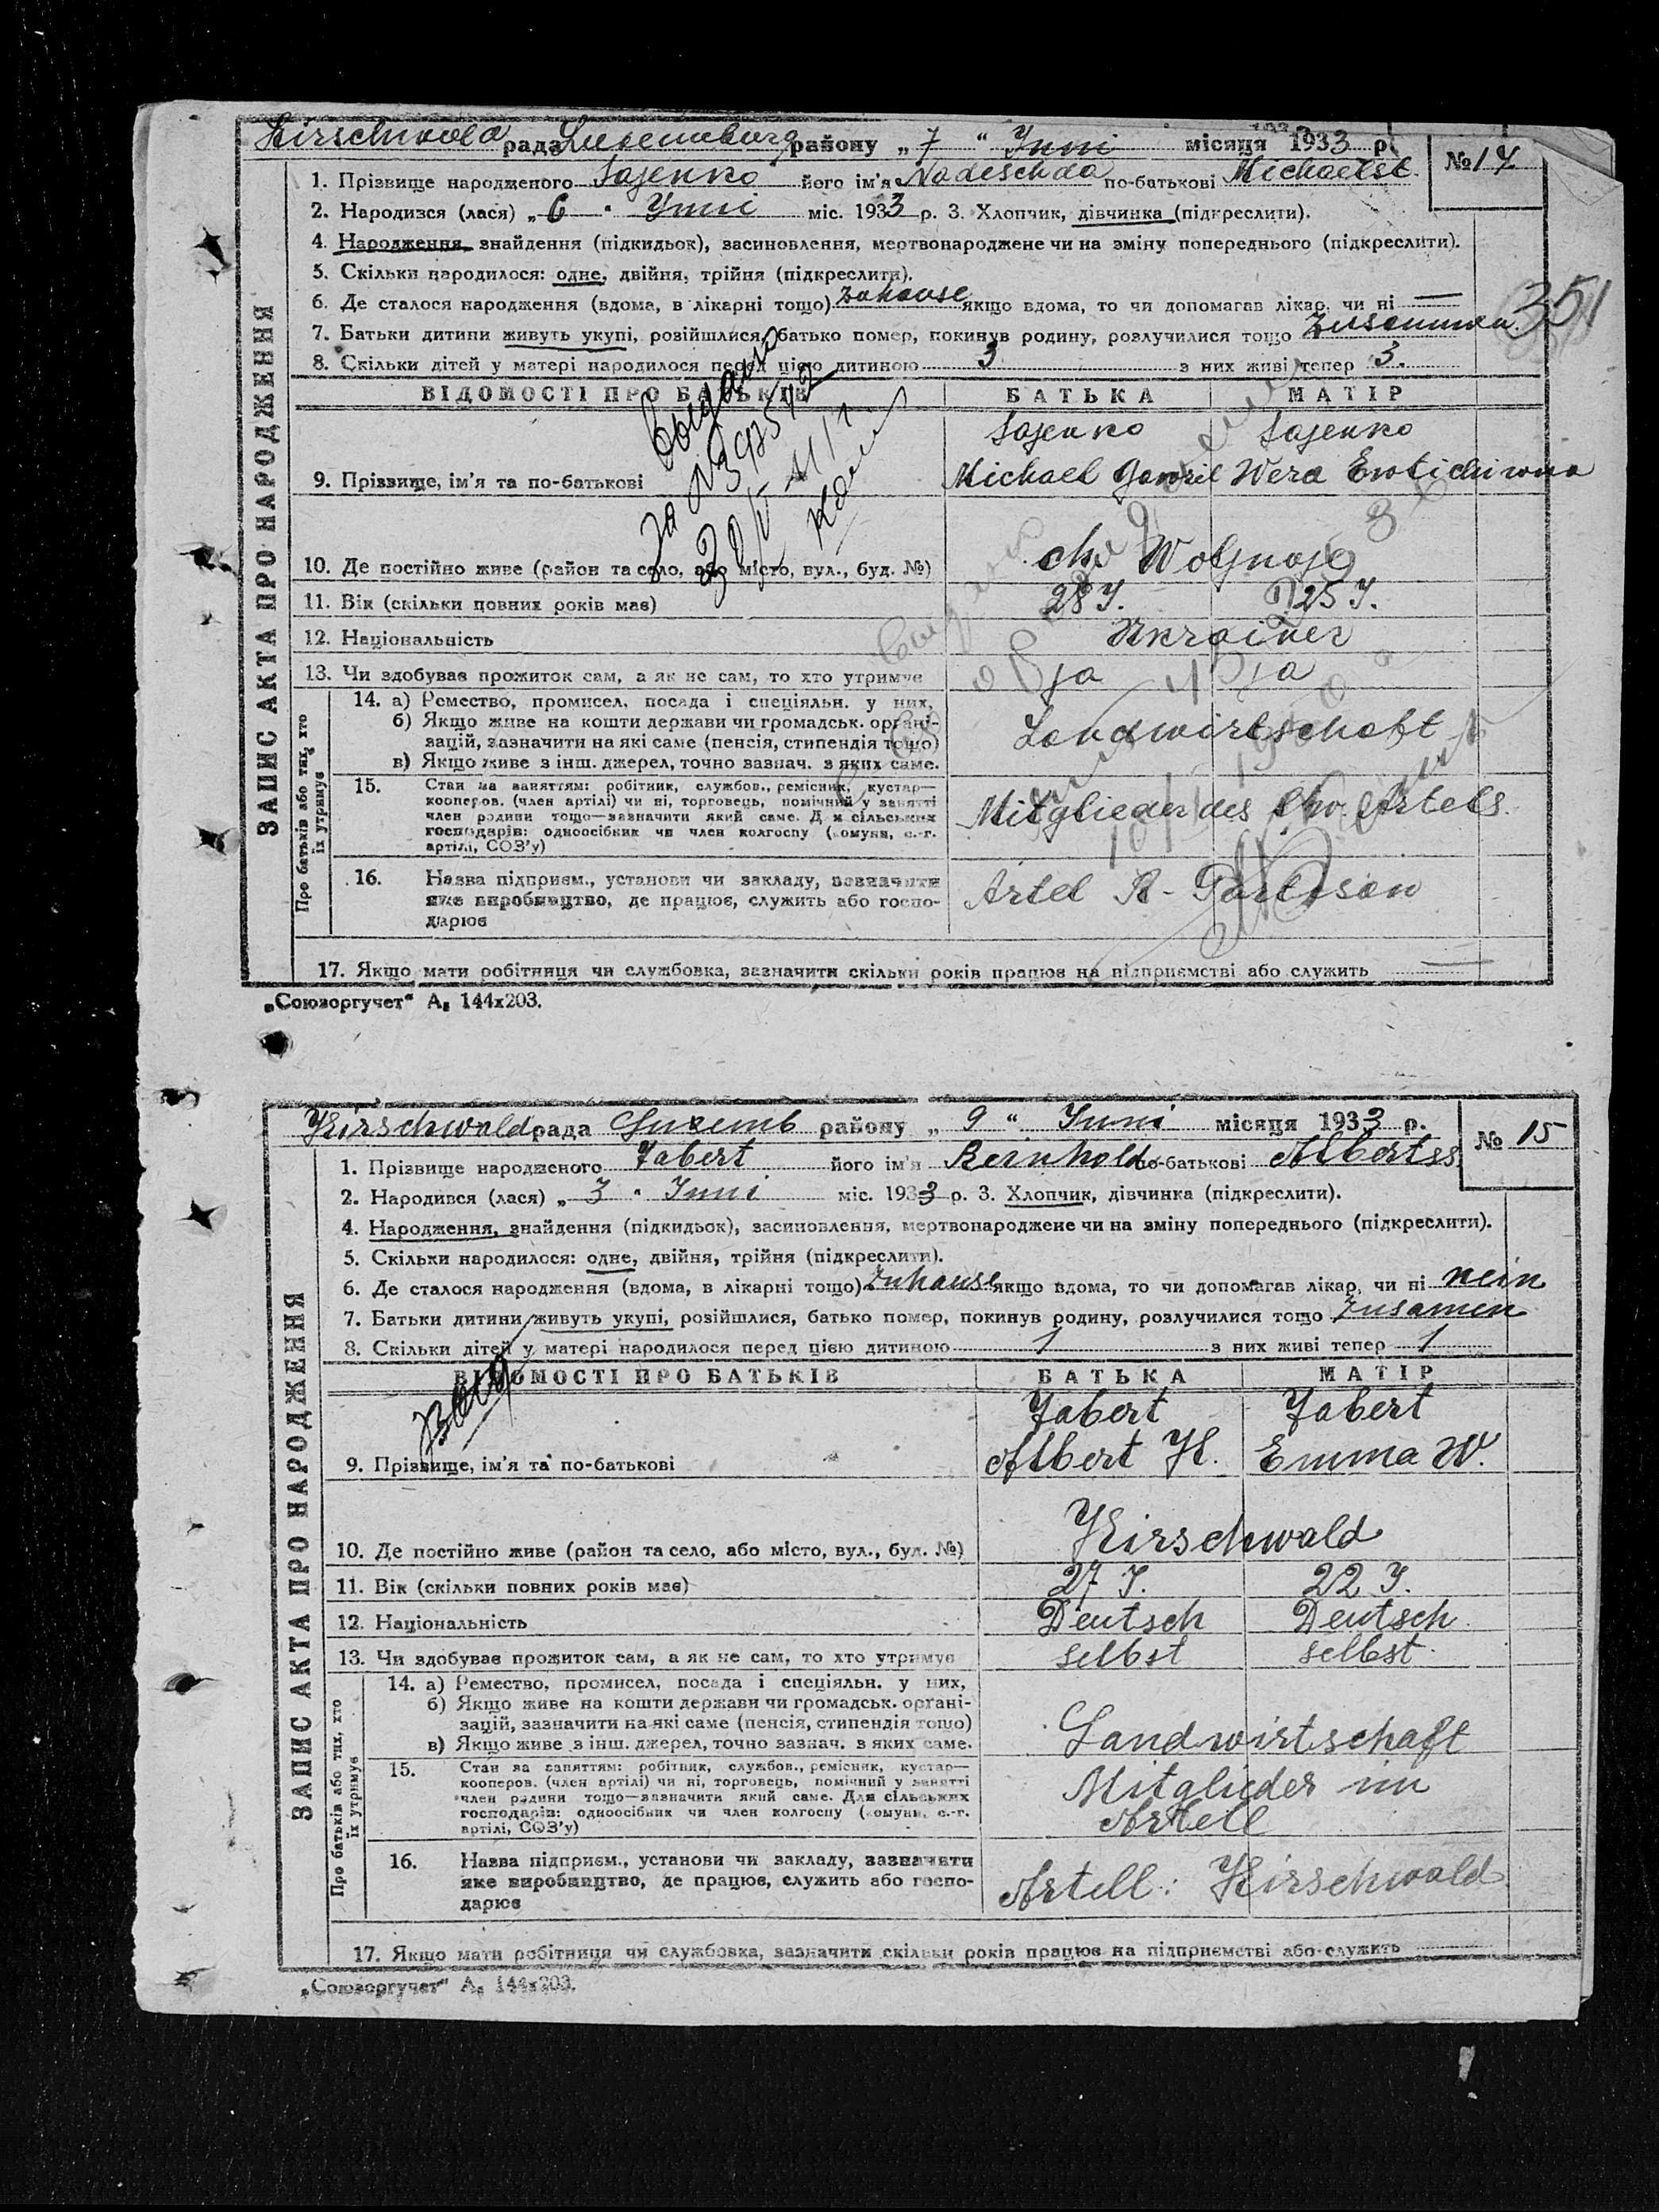 Kirschwald рада Luxemburg району „ 7 " Juni місяця 1933 р.
№ 14
1. Прізвище народженого Sajenko його ім'я Nadeschda по-батькові Michaelst.
2. Народився (лася) „ 6 " Juni міс. 1933 р. 3. Хлопчик, дівчинка (підкреслити).
4. Народження, знайдення (підкидьок), засиновлення, мертвонароджене чи на зміну попереднього (підкреслити).
5. Скільки народилося: одне, двійня, трійня (підкреслити).
6. Де сталося народження (вдома, в лікарні тощо) Zuhause якщо вдома, то чи допомагав лікар, чи ні —
351
7. Батьки дитини живуть укупі, розійшлися, батько помер, покинув родину, розлучилися тощо Zusammen.
8. Скільки дітей у матері народилося перед цією дитиною 3 з них живі тепер 3.
ВІДОМОСТІ ПРО БАТЬКІВ БАТЬКА МАТІР
Sajenko Sajenko
9. Прізвище, ім'я та по-батькові Michael Gawril Wera Ewtichiwna
10. Де постійно живе (район та село, або місто, вул., буд. №) Chu. Woljnaja
11. Вік (скільки повних років має) 28 J. 25 J.
12. Національність Ukrainer
13. Чи здобував прожиток сам, а як не сам, то хто утримує ja ja
14. а) Ремество, промисел, посада і спеціяльн. у них,
б) Якщо живе на кошти держави чи громадськ. органі-
зацій, зазначити на які саме (пенсія, стипендія тощо)
в) Якщо живе з інш. джерел, точно зазнач. з яких саме.
Landwirtschaft
15. Стан за заняттям: робітник, службов., ремісник, кустар—
кооперов. (член артілі) чи ні, торговець, помічний у занятті
член родини тощо—зазначити який саме. Для сільських
господарів: одноосібник чи член колгоспу (комуни, с.-г.
артілі, СОЗ'у)
Mitglieder des Chu. Artels.
16. Назва підприєм., установи чи закладу, зазначити
яке виробництво, де працює, служить або госпо-
дарює
Artel R- Partisan
17. Якщо мати робітниця чи службовка, зазначити скільки років працює на підприємстві або служить —
Про батьків або тих, хто
їх утримує
ЗАПИС АКТА ПРО НАРОДЖЕННЯ
„Союзоргучет" А₅ 144х203.
Kirschwald рада Luxemb району „ 9 " Juni місяця 1933 р.
№ 15
1. Прізвище народженого Jabert його ім'я Reinhold по-батькові Albertss.
2. Народився (лася) „ 3 " Juni міс. 1933 р. 3. Хлопчик, дівчинка (підкреслити).
4. Народження, знайдення (підкидьок), засиновлення, мертвонароджене чи на зміну попереднього (підкреслити).
5. Скільки народилося: одне, двійня, трійня (підкреслити).
6. Де сталося народження (вдома, в лікарні тощо) Zuhause якщо вдома, то чи допомагав лікар, чи ні nein
7. Батьки дитини живуть укупі, розійшлися, батько помер, покинув родину, розлучилися тощо Zusamen
8. Скільки дітей у матері народилося перед цією дитиною 1 з них живі тепер 1
ВІДОМОСТІ ПРО БАТЬКІВ БАТЬКА МАТІР
Jabert Jabert
9. Прізвище, ім'я та по-батькові Albert K. Emma W.
10. Де постійно живе (район та село, або місто, вул., буд. №) Kirschwald
11. Вік (скільки повних років має) 27 J. 22 J.
12. Національність Deutsch Deutsch
13. Чи здобував прожиток сам, а як не сам, то хто утримує selbst selbst.
14. а) Ремество, промисел, посада і спеціяльн. у них,
б) Якщо живе на кошти держави чи громадськ. органі-
зацій, зазначити на які саме (пенсія, стипендія тощо)
в) Якщо живе з інш. джерел, точно зазнач. з яких саме.
Landwirtschaft
15. Стан за заняттям: робітник, службов., ремісник, кустар—
кооперов. (член артілі) чи ні, торговець, помічний у занятті
член родини тощо—зазначити який саме. Для сільських
господарів: одноосібник чи член колгоспу (комуни, с.-г.
артілі, СОЗ'у)
Mitglieder im
Artell
16. Назва підприєм., установи чи закладу, зазначити
яке виробництво, де працює, служить або госпо-
дарює
Artell: Kirschwald
17. Якщо мати робітниця чи службовка, зазначити скільки років працює на підприємстві або служить
Про батьків або тих, хто
їх утримує
ЗАПИС АКТА ПРО НАРОДЖЕННЯ
„Союзоргучет" А₅ 144х203.